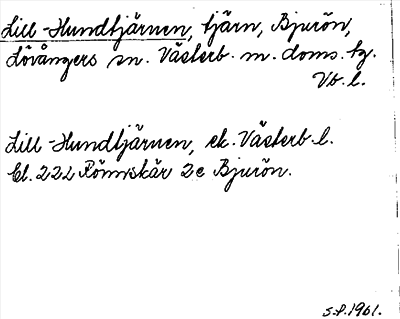 Lill-Hundtjärnen, tjärn, Bjurön,
Lövångers sn. Västerb. m. doms. tg.
Vb. l.
Lill-Hundtjärnen, ek. Västerb. l.
Bl. 222 Rönnskär 2e Bjurön.
S.P. 1961.